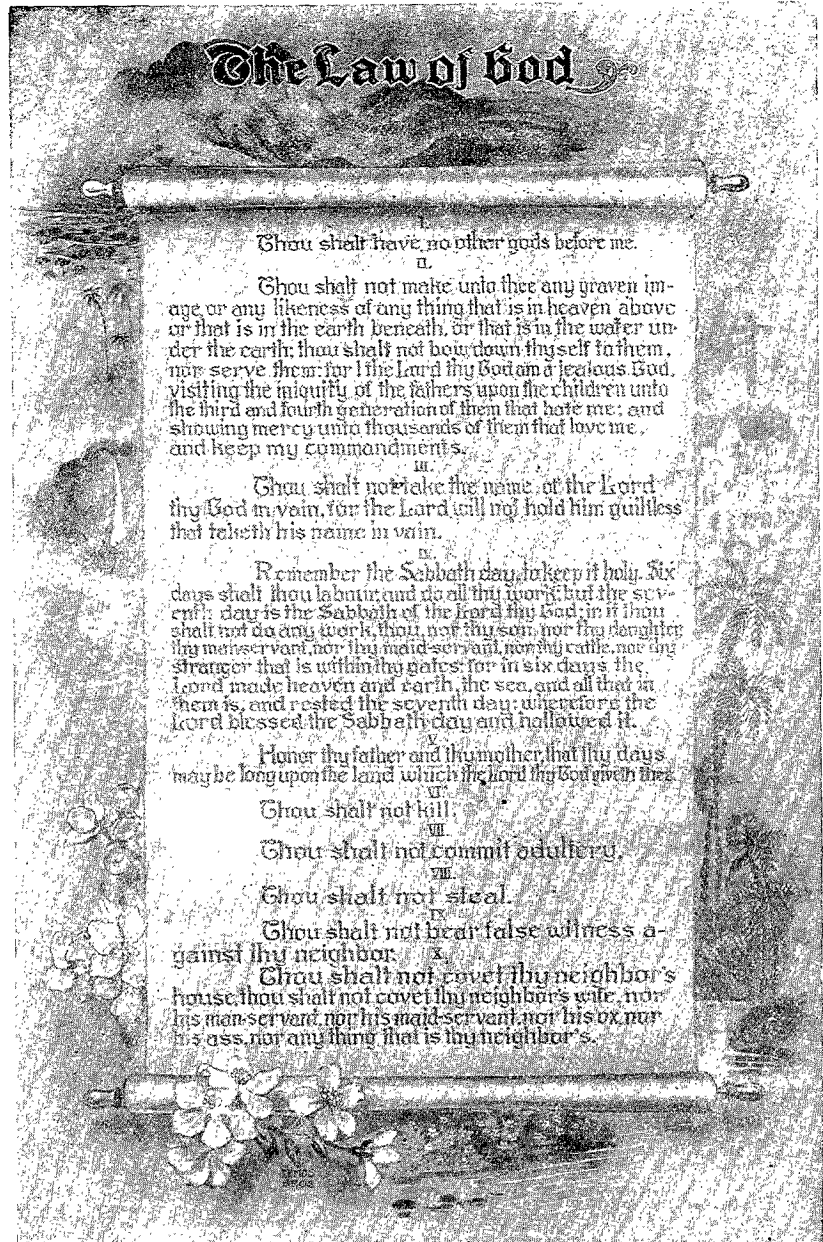 The Law of God
I.
Thou shalt have no other gods before me.
II.
Thou shalt not make unto thee any graven im-
age, or any likeness of any thing that is in heaven above
or that is in the earth beneath, or that is in the water un-
der the earth; thou shalt not bow down thyself to them,
nor serve them: for I the Lord thy God am a jealous God,
visiting the iniquity of the fathers upon the children unto
the third and fourth generation of them that hate me; and
showing mercy unto thousands of them that love me,
and keep my commandments.
III.
Thou shalt not take the name of the Lord
thy God in vain, for the Lord will not hold him guiltless
that taketh his name in vain.
IV.
Remember the Sabbath day, to keep it holy. Six
days shalt thou labour, and do all thy work, but the sev-
enth day is the Sabbath of the Lord thy God; in it thou
shalt not do any work, thou, nor thy son, nor thy daughter,
thy man-servant, nor thy maid-servant, nor thy cattle, nor thy
stranger that is within thy gates: for in six days the
Lord made heaven and earth, the sea, and all that in
them is, and rested the seventh day; wherefore the
Lord blessed the Sabbath day and hallowed it.
V.
Honor thy father and thy mother, that thy days
may be long upon the land which the Lord thy God giveth thee.
VI.
Thou shalt not kill.
VII.
Thou shalt not commit adultery.
VIII.
Thou shalt not steal.
IX.
Thou shalt not bear false witness a-
gainst thy neighbor.
X.
Thou shalt not covet thy neighbor's
house, thou shalt not covet thy neighbor's wife, nor
his man-servant, nor his maid-servant, nor his ox, nor
his ass, nor any thing that is thy neighbor's.
BROS